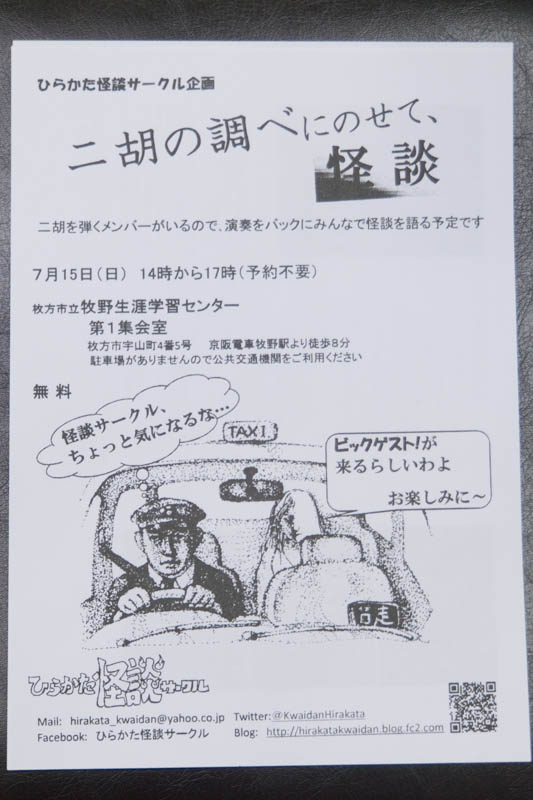 ひらかた怪談サークル企画
二胡の調べにのせて、
怪談
二胡を弾くメンバーがいるので、演奏をバックにみんなで怪談を語る予定です
7月15日(日) 14時から17時(予約不要)
枚方市立牧野生涯学習センター
第1集会室
枚方市宇山町4番5号 京阪電車牧野駅より徒歩8分
駐車場がありませんので公共交通機関をご利用ください
無料
怪談サークル、
ちょっと気になるな…
TAXI
ビックゲスト!が
来るらしいわよ
お楽しみに～
ひらかた怪談サークル
Mail: hirakata_kwaidan@yahoo.co.jp Twitter:@KwaidanHirakata
Facebook: ひらかた怪談サークル Blog: http://hirakatakwaidan.blog.fc2.com